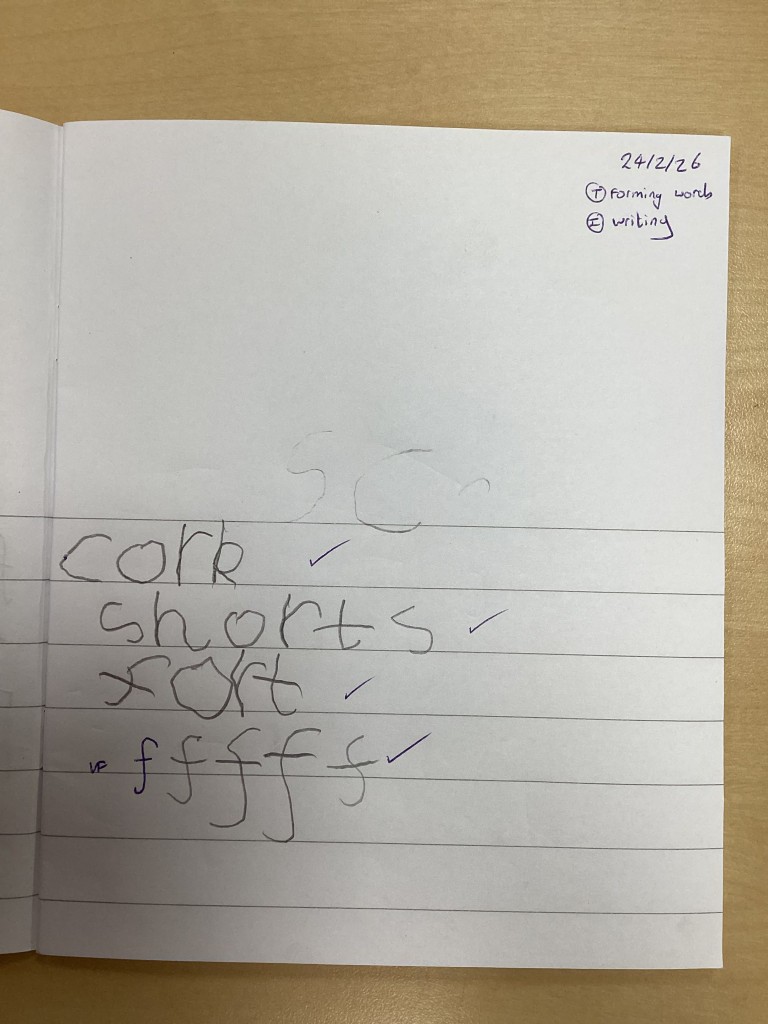 24/2/26
Ⓣ Forming words
Ⓘ writing
sc
cork
shorts
fort
VF f f f f f